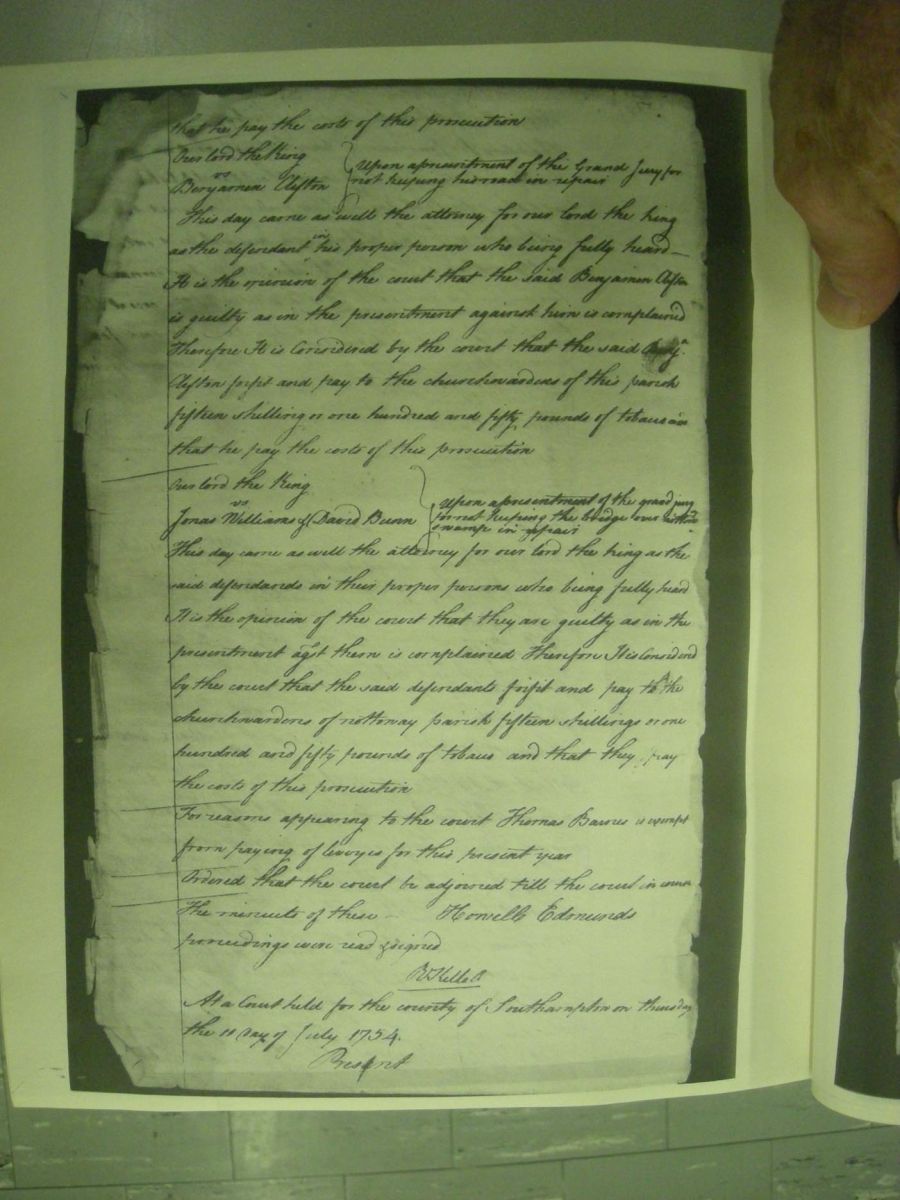 that he pay the costs of this prosecution
Our lord the King
vs
Benjamin Clifton
Upon a presentment of the Grand Jury for
not keeping his road in repair
This day came as well the attorney for our lord the king
as the defendant in his proper person who being fully heard
It is the opinion of the court that the said Benjamin Clifton
is guilty as in the presentment against him is complained
Therefore It is Considered by the court that the said Benj.a
Clifton forfit and pay to the churchwardens of this parish
fifteen shilling or one hundred and fifty pounds of tobacco
that he pay the costs of this prosecution
Our lord the King
vs
Jonas Williams & David Bunn
Upon a presentment of the grand jury
for not keeping the bridge over
swamp in repair
This day came as well the attorney for our lord the king as the
said defendands in their proper persons who being fully heard
It is the opinion of the court that they are guilty as in the
presentment agst them is complained Therefore It is Considered
by the court that the said defendants forfit and pay to the
churchwardens of nottoway parish fifteen shillings or one
hundred and fifty pounds of tobaco and that they pay
the costs of this prosecution
For reasons appearing to the court Thomas Barnes is exempt
from paying of levyes for this present year
Ordered that the court be adjorned till the court in
The minuets of these Howell Edmunds
proceedings were read & signed
At a Court held for the county of Southampton on thursday
the 11 Day of July 1754.
Present